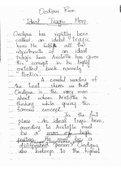 Oedipus Rex
"Ideal Tragic Hero"
Oedipus has rightly been
called an ideal Tragic
hero. He fulfills all the
requirements of an ideal
tragic hero. Aristotle has given
this concept in his highly
esteemed book namely
"Poetics".
A careful reading of
the text shows us that
Oedipus is the very man
about whom Aristotle is
thinking while giving this
concept.
In the first
place. An ideal tragic hero,
according to Aristotle must
be
a
distinguished person. Oedipus
also belongs to the highest